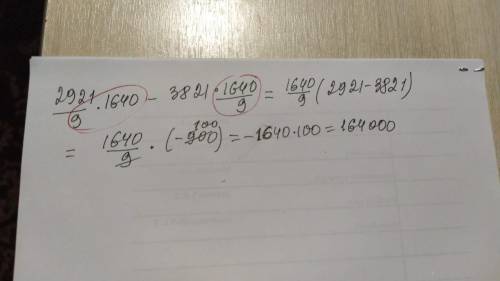 2921/9 · 1640 - 3821 · 1640/9 = 1640/9 (2921-3821)
= 1640/9 · (-900) 100 = -1640·100 = 164000